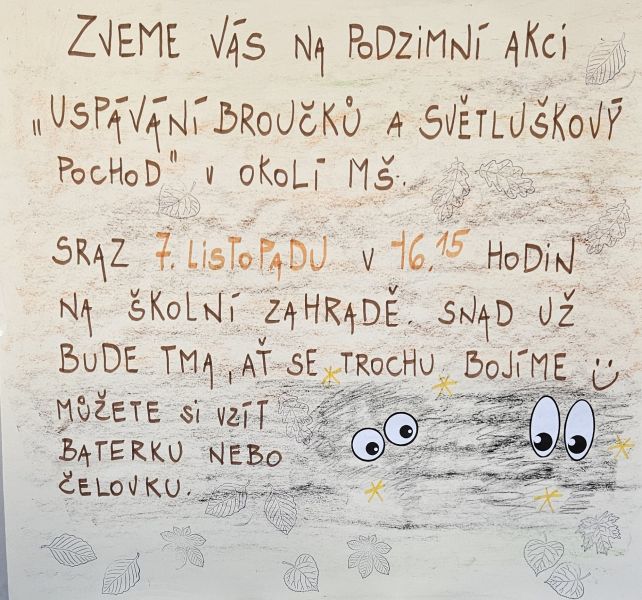 ZVEME VÁS NA PODZIMNÍ AKCI
„USPÁVÁNÍ BROUČKŮ A SVĚTLUŠKOVÝ
POCHOD" V OKOLÍ MŠ.
SRAZ 7. LISTOPADU V 16.15 HODIN
NA ŠKOLNÍ ZAHRADĚ. SNAD UŽ
BUDE TMA, AŤ SE TROCHU BOJÍME :)
MŮŽETE SI VZÍT
BATERKU NEBO
ČELOVKU.